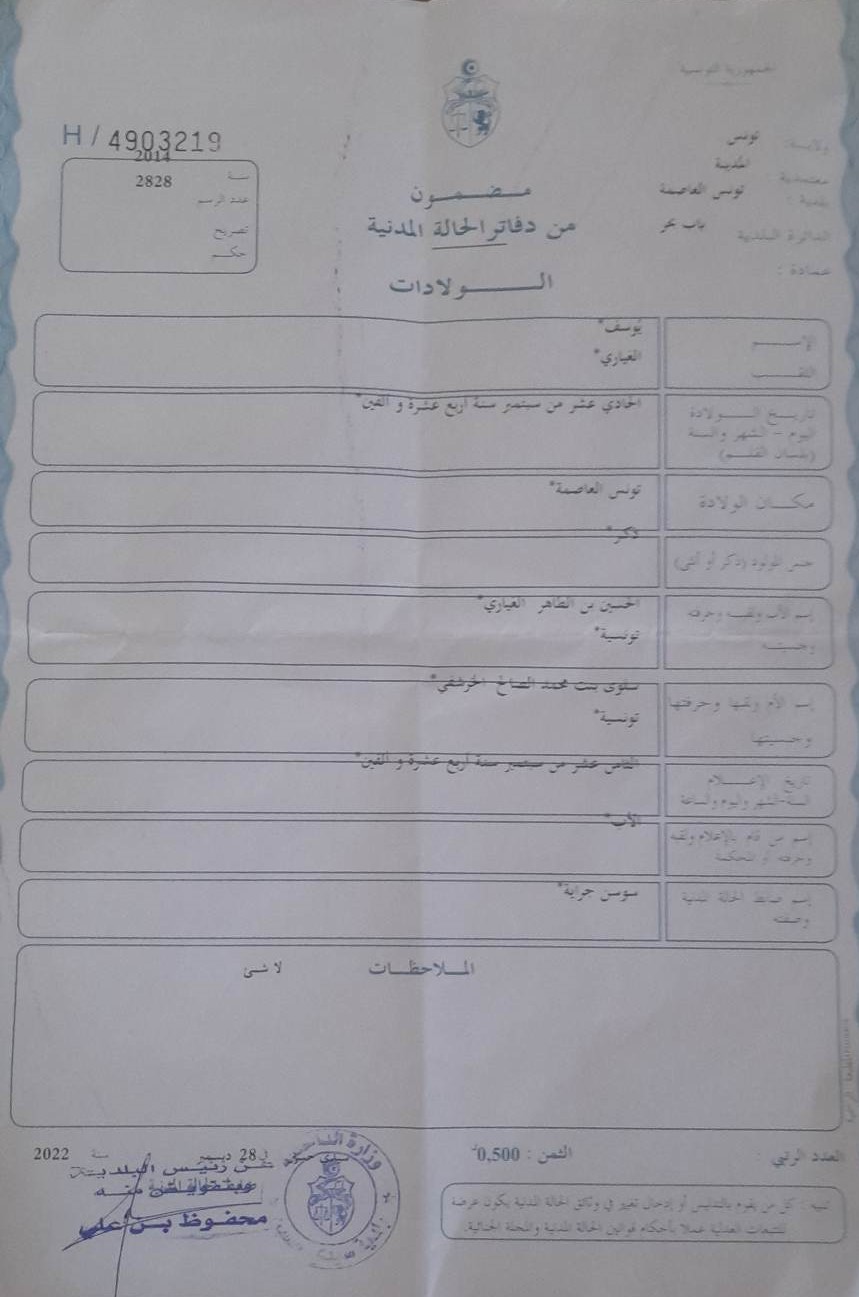 الجمهورية التونسية
H / 4903219
ولاية: تونس
معتمدية : المدينة
بلدية : تونس العاصمة
الدائرة البلدية باب بحر
عمادة :
سنة 2014
عدد الرسم 2828
تصريح
حكم
مضمون
من دفاتر الحالة المدنية
الولادات
الإسم يوسف*
اللقب الغياري*
تاريخ الولادة الحادي عشر من سبتمبر سنة أربع عشرة و ألفين*
اليوم - الشهر والسنة
(بلسان القلم)
مكان الولادة تونس العاصمة*
جنس المولود (ذكر أو أنثى) ذكر*
إسم الأب ولقبه وحرفته الحسين بن الطاهر الغياري*
وجنسيته تونسية*
إسم الأم ولقبها وحرفتها سلوى بنت محمد الصالح الخرشفي*
وجنسيتها تونسية*
تاريخ الإعلام الثامن عشر من سبتمبر سنة أربع عشرة و ألفين*
السنة-الشهر واليوم والساعة
إسم من قام بالإعلام ولقبه الأب*
وحرفته أو المحكمة
إسم ضابط الحالة المدنية سوسن جراية*
وصفته
الملاحظات لا شئ
العدد الرتبي :
الثمن : 0,500د
28 ديسمبر سنة 2022
عن رئيس البلدية
وبتفويض منه
محفوظ بن علي
تنبيه : كل من يقوم بالتدليس أو إدخال تغيير في وثائق الحالة المدنية يكون عرضة
للتتبعات العدلية عملا بأحكام قوانين الحالة المدنية والمجلة الجنائية.